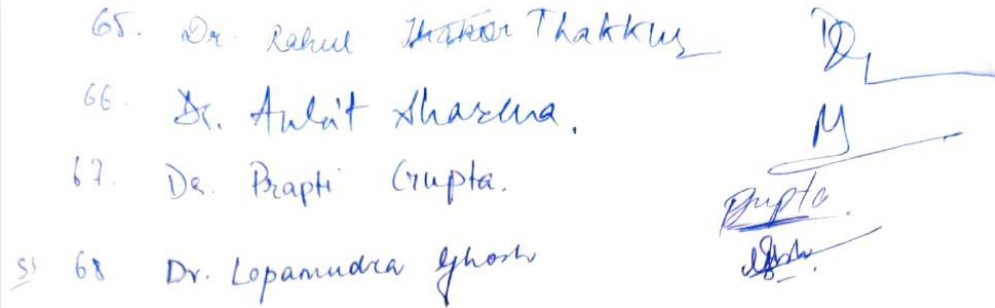 65. Dr. Rahul Thakkur
66. Dr. Ankit Sharma.
67. Dr. Prapti Gupta. Gupta.
68 Dr. Lopamudra Ghosh